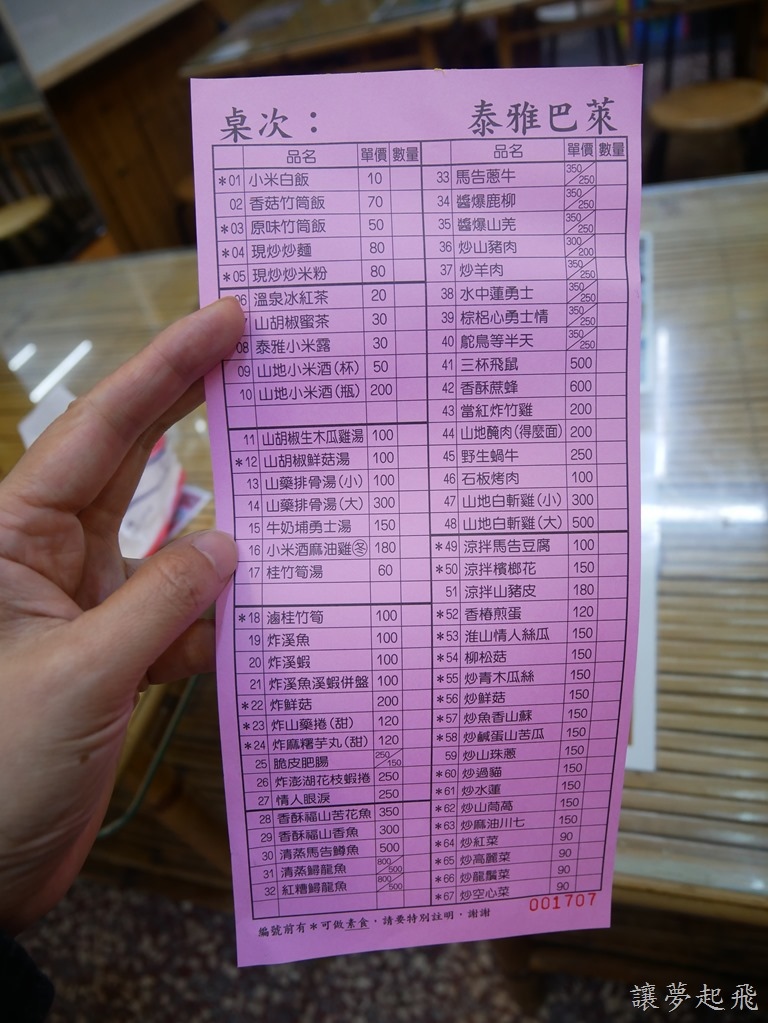 桌次： 泰雅巴萊
品名 單價 數量
*01 小米白飯 10
02 香菇竹筒飯 70
*03 原味竹筒飯 50
*04 現炒炒麵 80
*05 現炒炒米粉 80
06 溫泉冰紅茶 20
7 山胡椒蜜茶 30
08 泰雅小米露 30
09 山地小米酒(杯) 50
10 山地小米酒(瓶) 200
11 山胡椒生木瓜雞湯 100
*12 山胡椒鮮菇湯 100
13 山藥排骨湯(小) 100
14 山藥排骨湯(大) 300
15 牛奶埔勇士湯 150
16 小米酒麻油雞㊡ 180
17 桂竹筍湯 60
*18 滷桂竹筍 100
19 炸溪魚 100
20 炸溪蝦 100
21 炸溪魚溪蝦併盤 100
*22 炸鮮菇 200
*23 炸山藥捲(甜) 120
*24 炸麻糬芋丸(甜) 120
25 脆皮肥腸 250/150
26 炸澎湖花枝蝦捲 250
27 情人眼淚 250
28 香酥福山苦花魚 350
29 香酥福山香魚 300
30 清蒸馬告鱒魚 500
31 清蒸鱘龍魚 800/500
32 紅糟鱘龍魚 800/500
品名 單價 數量
33 馬告蔥牛 350/250
34 醬爆鹿柳 350/250
35 醬爆山羌 350/250
36 炒山豬肉 300/200
37 炒羊肉 350/250
38 水中蓮勇士 350/250
39 棕梠心勇士情 350/250
40 鴕鳥等半天 350/250
41 三杯飛鼠 500
42 香酥蔗蜂 600
43 當紅炸竹雞 200
44 山地醃肉(得麼面) 200
45 野生蝸牛 250
46 石板烤肉 100
47 山地白斬雞(小) 300
48 山地白斬雞(大) 500
*49 涼拌馬告豆腐 100
*50 涼拌檳榔花 150
51 涼拌山豬皮 180
*52 香椿煎蛋 120
*53 淮山情人絲瓜 150
*54 柳松菇 150
*55 炒青木瓜絲 150
*56 炒鮮菇 150
*57 炒魚香山蘇 150
*58 炒鹹蛋山苦瓜 150
59 炒山珠蔥 150
*60 炒過貓 150
*61 炒水蓮 150
*62 炒山茼萵 150
*63 炒麻油川七 150
*64 炒紅菜 90
*65 炒高麗菜 90
*66 炒龍鬚菜 90
*67 炒空心菜 90
001707
編號前有*可做素食，請要特別註明，謝謝
讓夢起飛